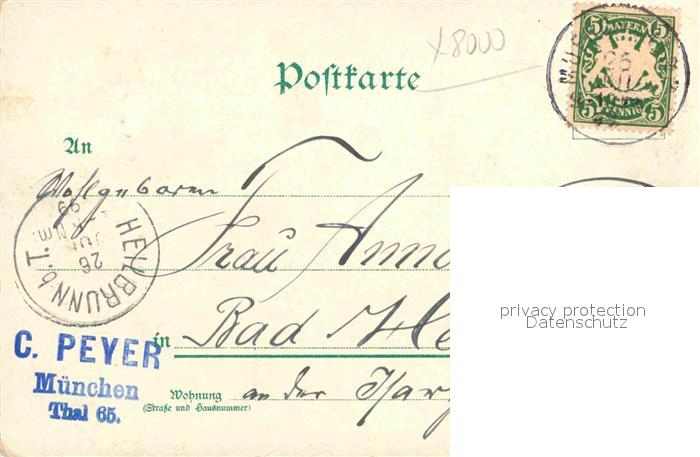 x8000
Postkarte
BAYERN
5 5
5 5
PFENNIG
An
Wohlgeboren
Frau Anna
in Bad He
Wohnung an der Isar
(Straße und Hausnummer)
HEILBRUNN b.T.
26
JUL
99
C. PEYER
München
Thal 65.
privacy protection
Datenschutz